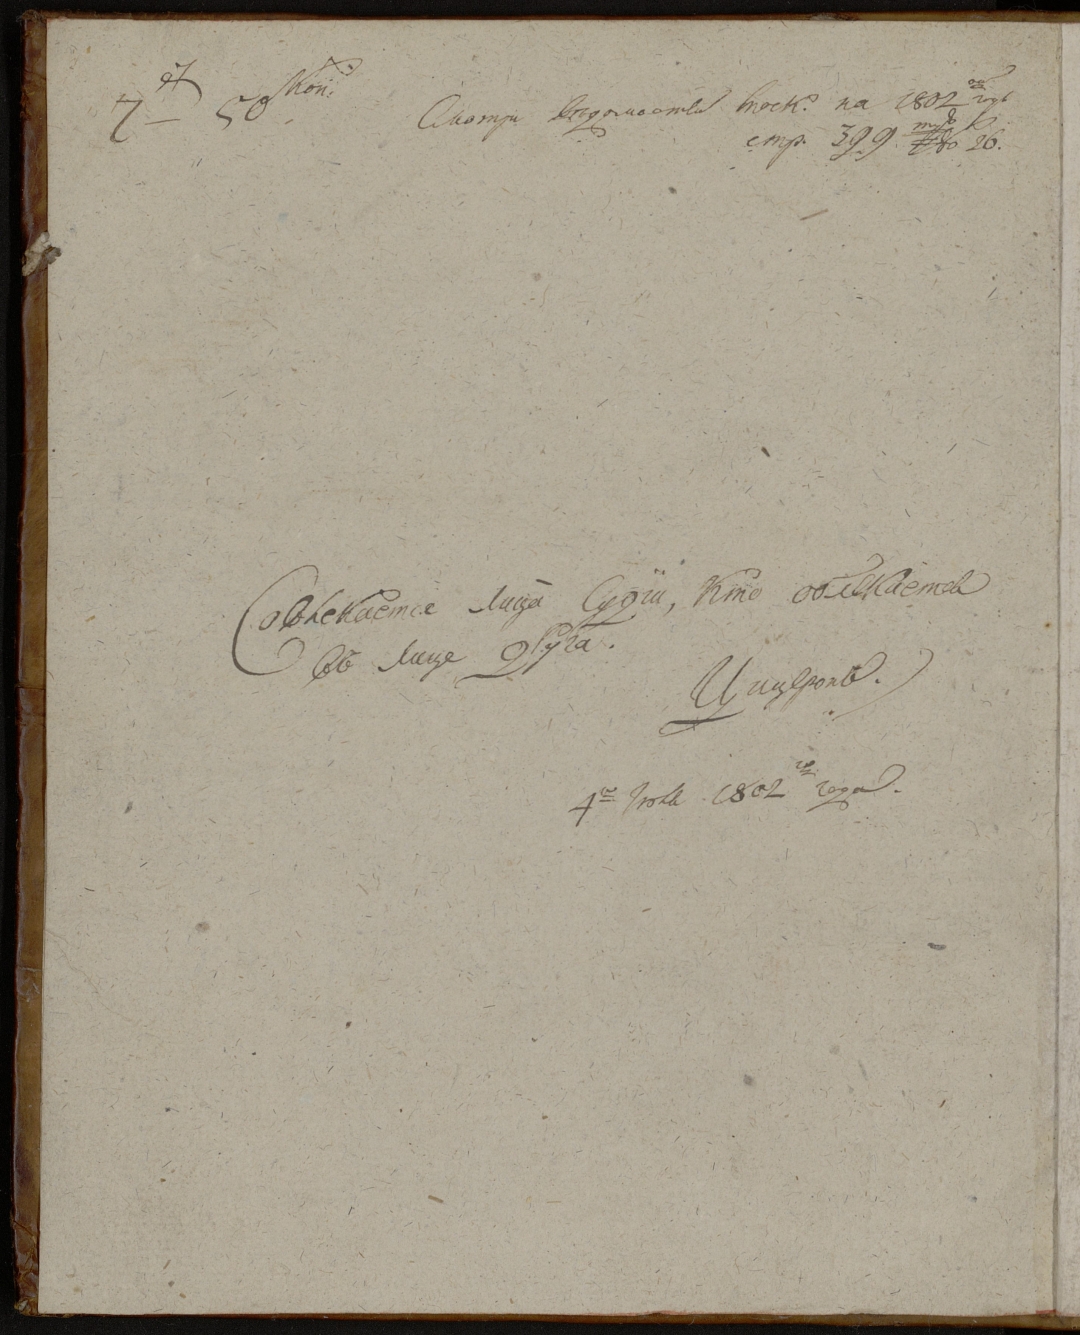 7 50 Коп.
Смотри вѣдомости моск. на 1802 годъ
стр. 399 № 26.
Совлекается лица Судіи, Кто облекается
въ лице друга.
Цицеронъ.
4го 1802го года.